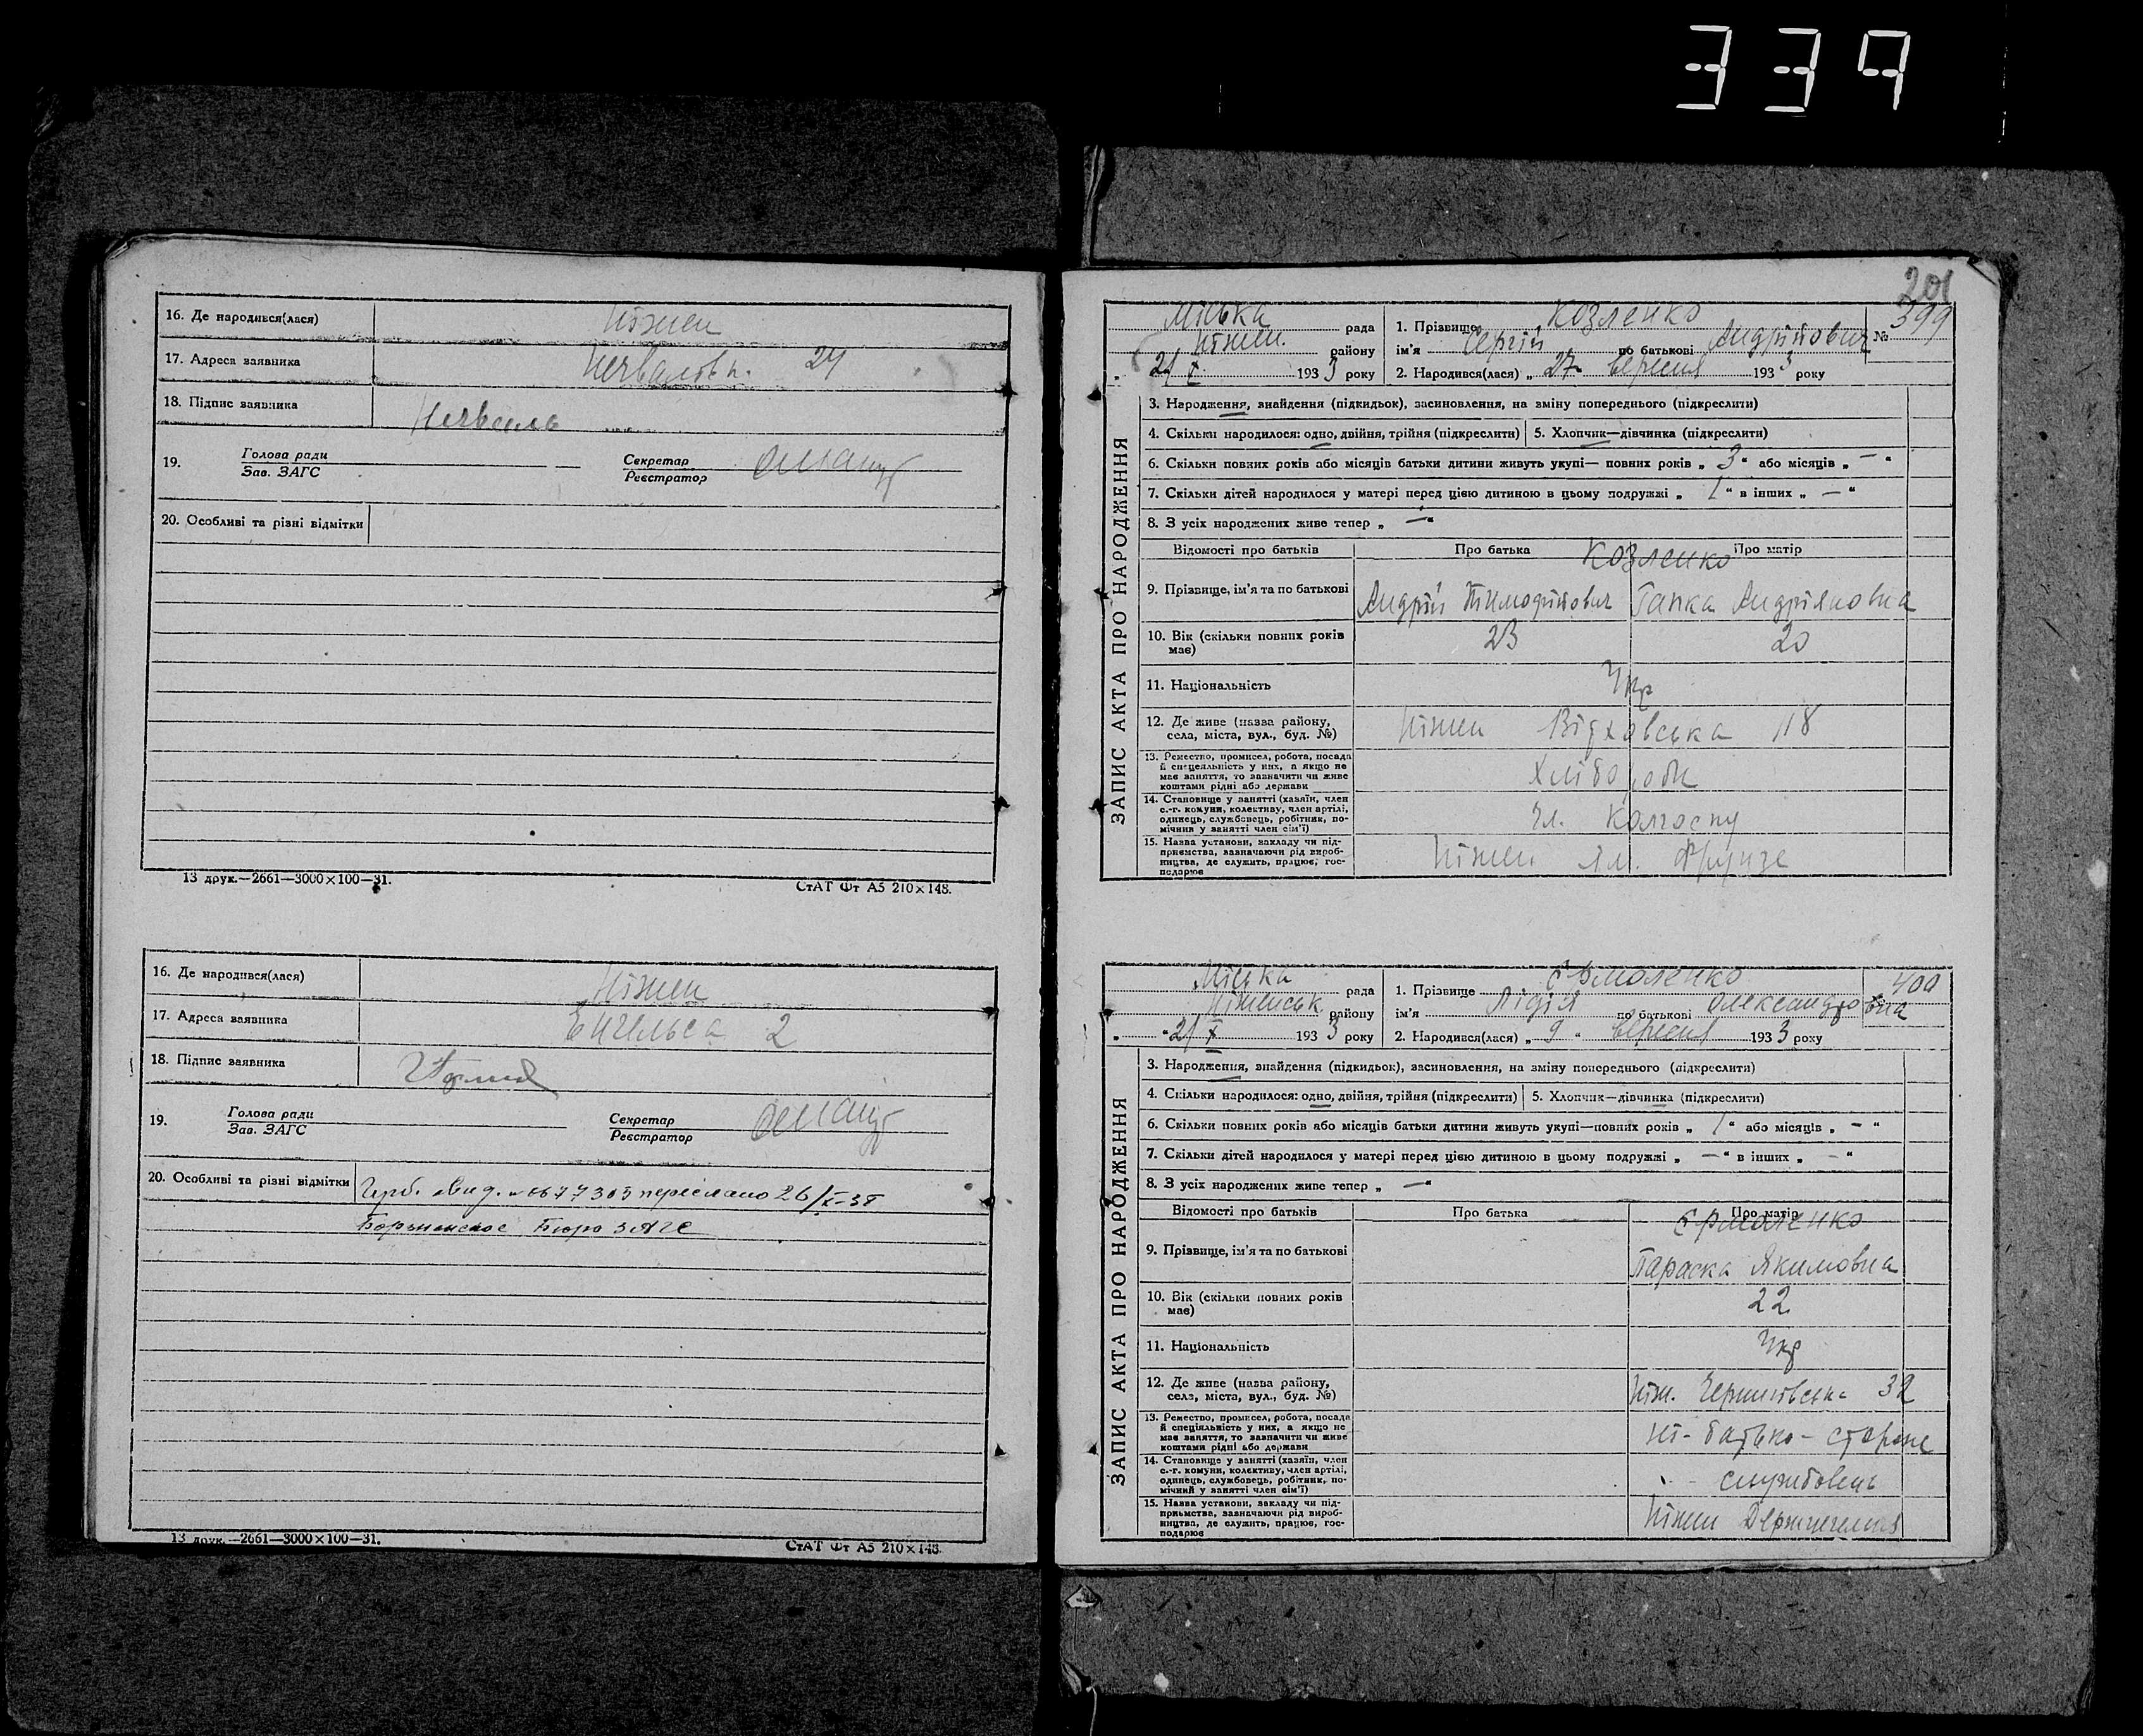 339
16. Де народився(лася) Ніжен
17. Адреса заявника 24
18. Підпис заявника
19. Голова ради Секретар
Зав. ЗАГС Реєстратор
20. Особливі та різні відмітки
13 друк.—2661—3000×100—31. СтАТ Фт А5 210×148.
16. Де народився(лася) Ніжен
17. Адреса заявника Енгельса 2
18. Підпис заявника
19. Голова ради Секретар
Зав. ЗАГС Реєстратор
20. Особливі та різні відмітки переслано 26/X-38
Бюро ЗАГС
13 друк.—2661—3000×100—31. СтАТ Фт А5 210×148.
201
Міська рада 1. Прізвище Козленко № 399
Ніжен. району ім'я Сергій по батькові Андрійович
„ 21 X 1933 року 2. Народився(лася) „ 27 вересня 1933 року
ЗАПИС АКТА ПРО НАРОДЖЕННЯ
3. Народження, знайдення (підкидьок), засиновлення, на зміну попереднього (підкреслити)
4. Скільки народилося: одно, двійня, трійня (підкреслити) 5. Хлопчик—дівчинка (підкреслити)
6. Скільки повних років або місяців батьки дитини живуть укупі— повних років „ 3 “ або місяців „ — “
7. Скільки дітей народилося у матері перед цією дитиною в цьому подружжі „ 1 “ в інших „ — “
8. З усіх народжених живе тепер „ — “
Відомості про батьків Про батька Про матір
Козленко
9. Прізвище, ім'я та по батькові Андрій Тимофійович Ганка Андріяновна
10. Вік (скільки повних років має) 23 20
11. Національність Укр
12. Де живе (назва району, села, міста, вул., буд. №) Ніжен 118
13. Ремество, промисел, робота, посада й спеціяльність у них, а якщо не має заняття, то зазначити чи живе коштами рідні або держави Хлібороби
14. Становище у занятті (хазяїн, член с.-г. комуни, колективу, член артілі, одинець, службовець, робітник, помічник у занятті член сім'ї) Чл. колгоспу
15. Назва установи, закладу чи підприємства, зазначаючи рід виробництва, де служить, працює, господарює Ніжен ім. Фрунзе
Міська рада 1. Прізвище Єрмоленко 400
Ніженськ. району ім'я Лідія по батькові Олександровна
„ 21 X 1933 року 2. Народився(лася) „ 9 “ вересня 1933 року
ЗАПИС АКТА ПРО НАРОДЖЕННЯ
3. Народження, знайдення (підкидьок), засиновлення, на зміну попереднього (підкреслити)
4. Скільки народилося: одно, двійня, трійня (підкреслити) 5. Хлопчик—дівчинка (підкреслити)
6. Скільки повних років або місяців батьки дитини живуть укупі—повних років „ 1 “ або місяців „ — “
7. Скільки дітей народилося у матері перед цією дитиною в цьому подружжі „ — “ в інших „ — “
8. З усіх народжених живе тепер „ — “
Відомості про батьків Про батька Про матір
Єрмоленко
9. Прізвище, ім'я та по батькові Параска Якимовна
10. Вік (скільки повних років має) 22
11. Національність Укр
12. Де живе (назва району, села, міста, вул., буд. №) Ніж. Чернигівська 32
13. Ремество, промисел, робота, посада й спеціяльність у них, а якщо не має заняття, то зазначити чи живе коштами рідні або держави
14. Становище у занятті (хазяїн, член с.-г. комуни, колективу, член артілі, одинець, службовець, робітник, помічний у занятті член сім'ї) службовець
15. Назва установи, закладу чи підприємства, зазначаючи рід виробництва, де служить, працює, господарює Ніжен